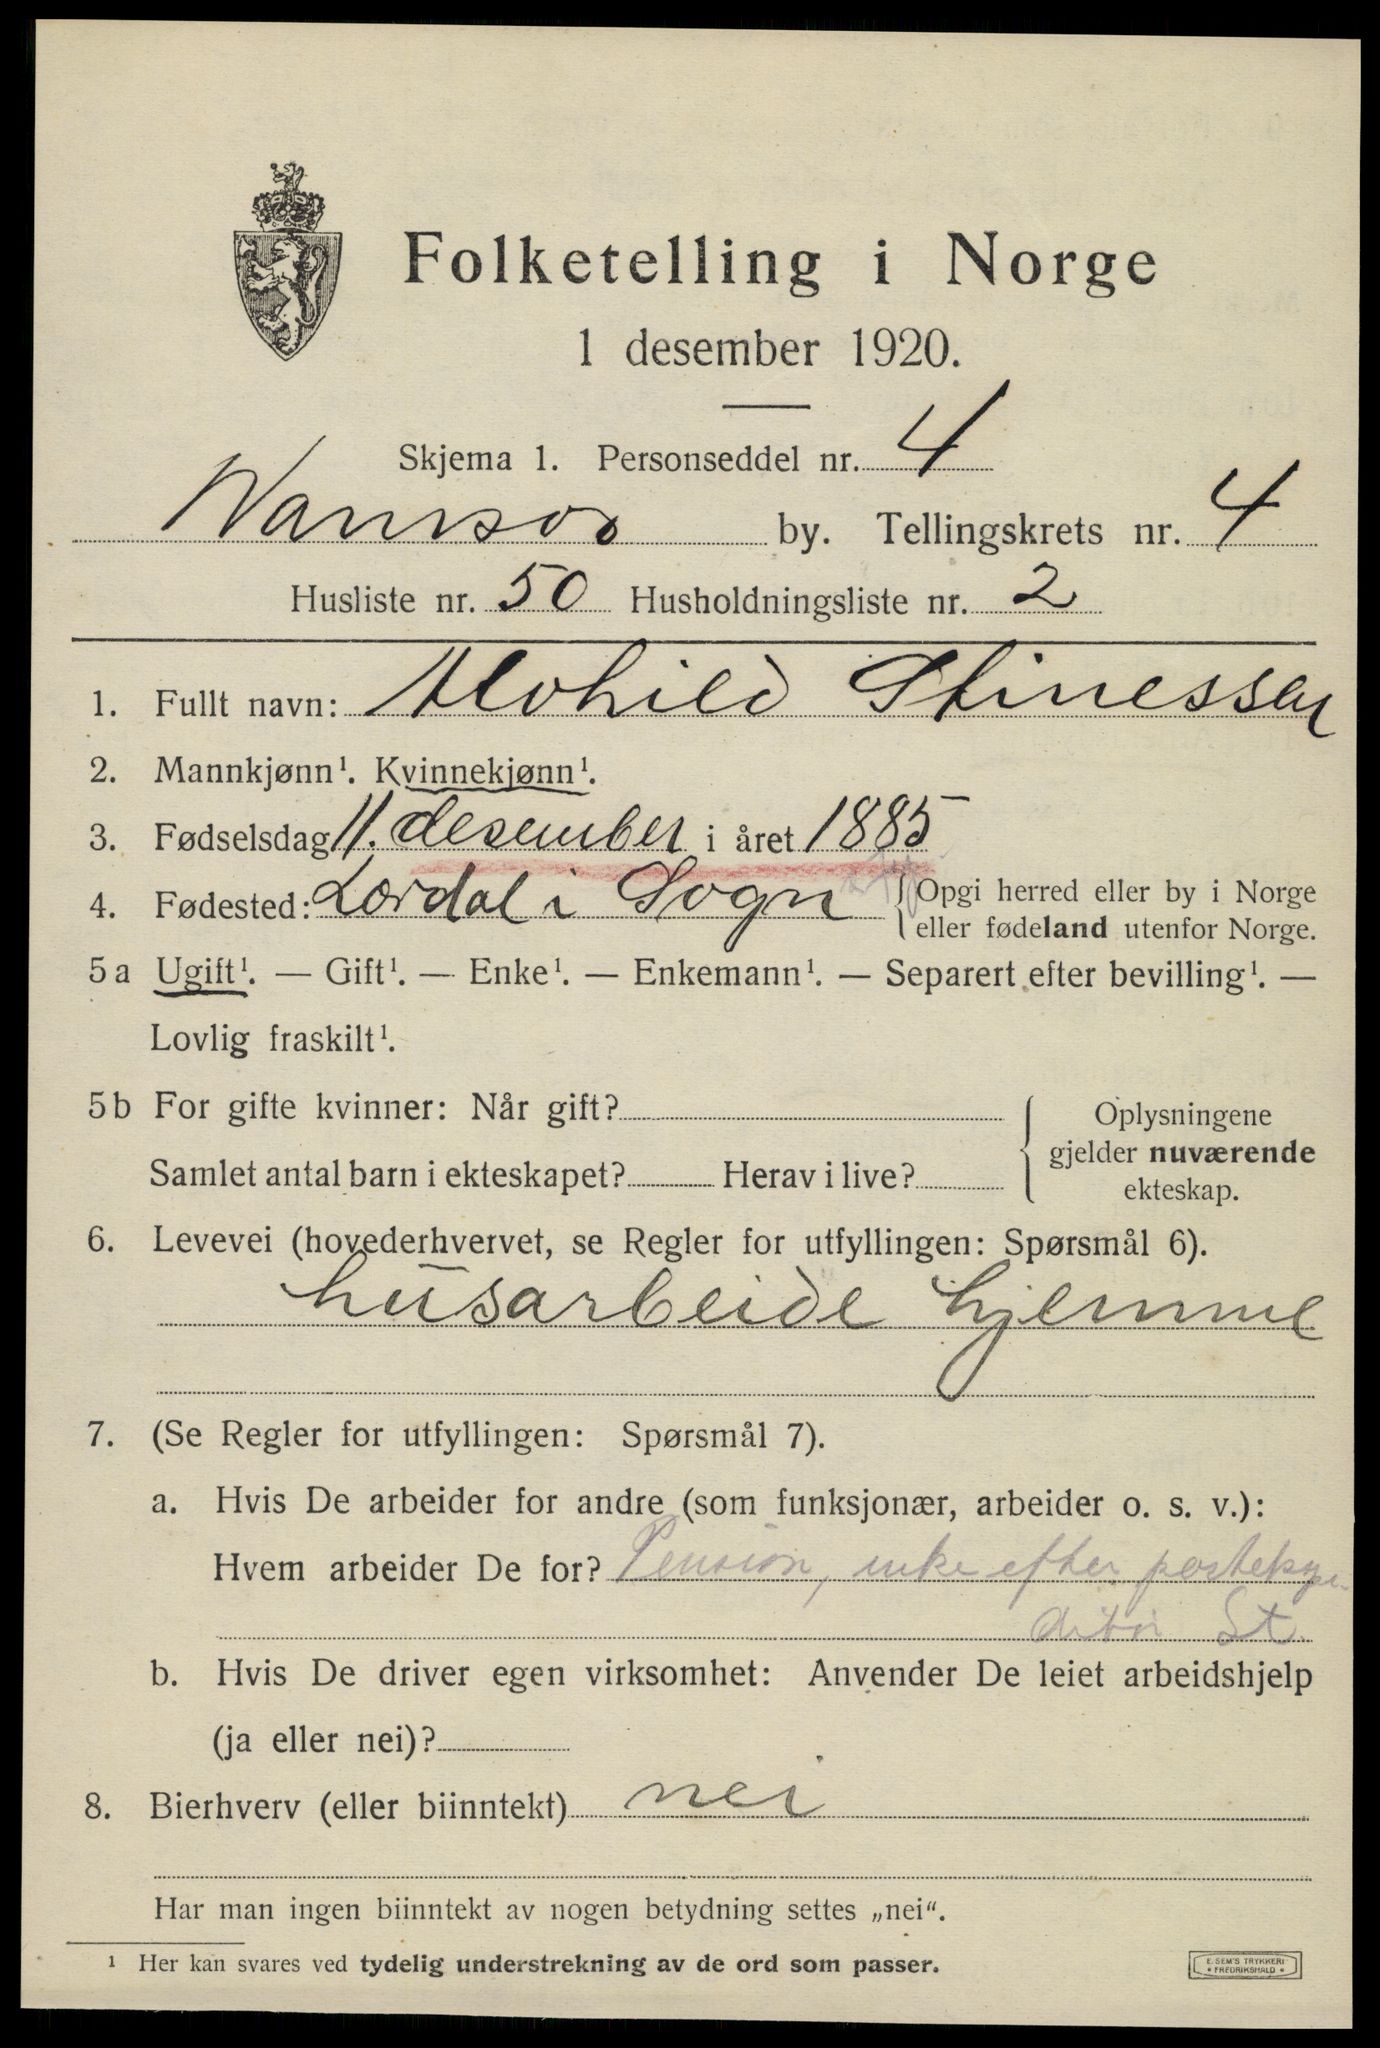 Folketelling i Norge
1 desember 1920.
Skjema 1. Personseddel nr. 4
Namsos by. Tellingskrets nr. 4
Husliste nr. 50 Husholdningsliste nr. 2
1. Fullt navn: Alvhild Stinessen
2. Mannkjønn¹. Kvinnekjønn¹.
3. Fødselsdag 11. desember i året 1885
4. Fødested: Lærdal i Sogn {Opgi herred eller by i Norge
eller fødeland utenfor Norge.
5a Ugift¹. — Gift¹. — Enke¹. — Enkemann¹. — Separert efter bevilling¹. —
Lovlig fraskilt¹.
5b For gifte kvinner: Når gift?
Samlet antal barn i ekteskapet? Herav i live?
{Oplysningene
gjelder nuværende
ekteskap.
6. Levevei (hovederhvervet, se Regler for utfyllingen: Spørsmål 6).
husarbeide hjemme
7. (Se Regler for utfyllingen: Spørsmål 7).
a. Hvis De arbeider for andre (som funksjonær, arbeider o. s. v.):
Hvem arbeider De for? Pension, enke efter postekspe-
ditør St.
b. Hvis De driver egen virksomhet: Anvender De leiet arbeidshjelp
(ja eller nei)?
8. Bierhverv (eller biinntekt) nei
Har man ingen biinntekt av nogen betydning settes „nei“.
¹ Her kan svares ved tydelig understrekning av de ord som passer.
E. SEM'S TRYKKERI
• FREDRIKSHALD •